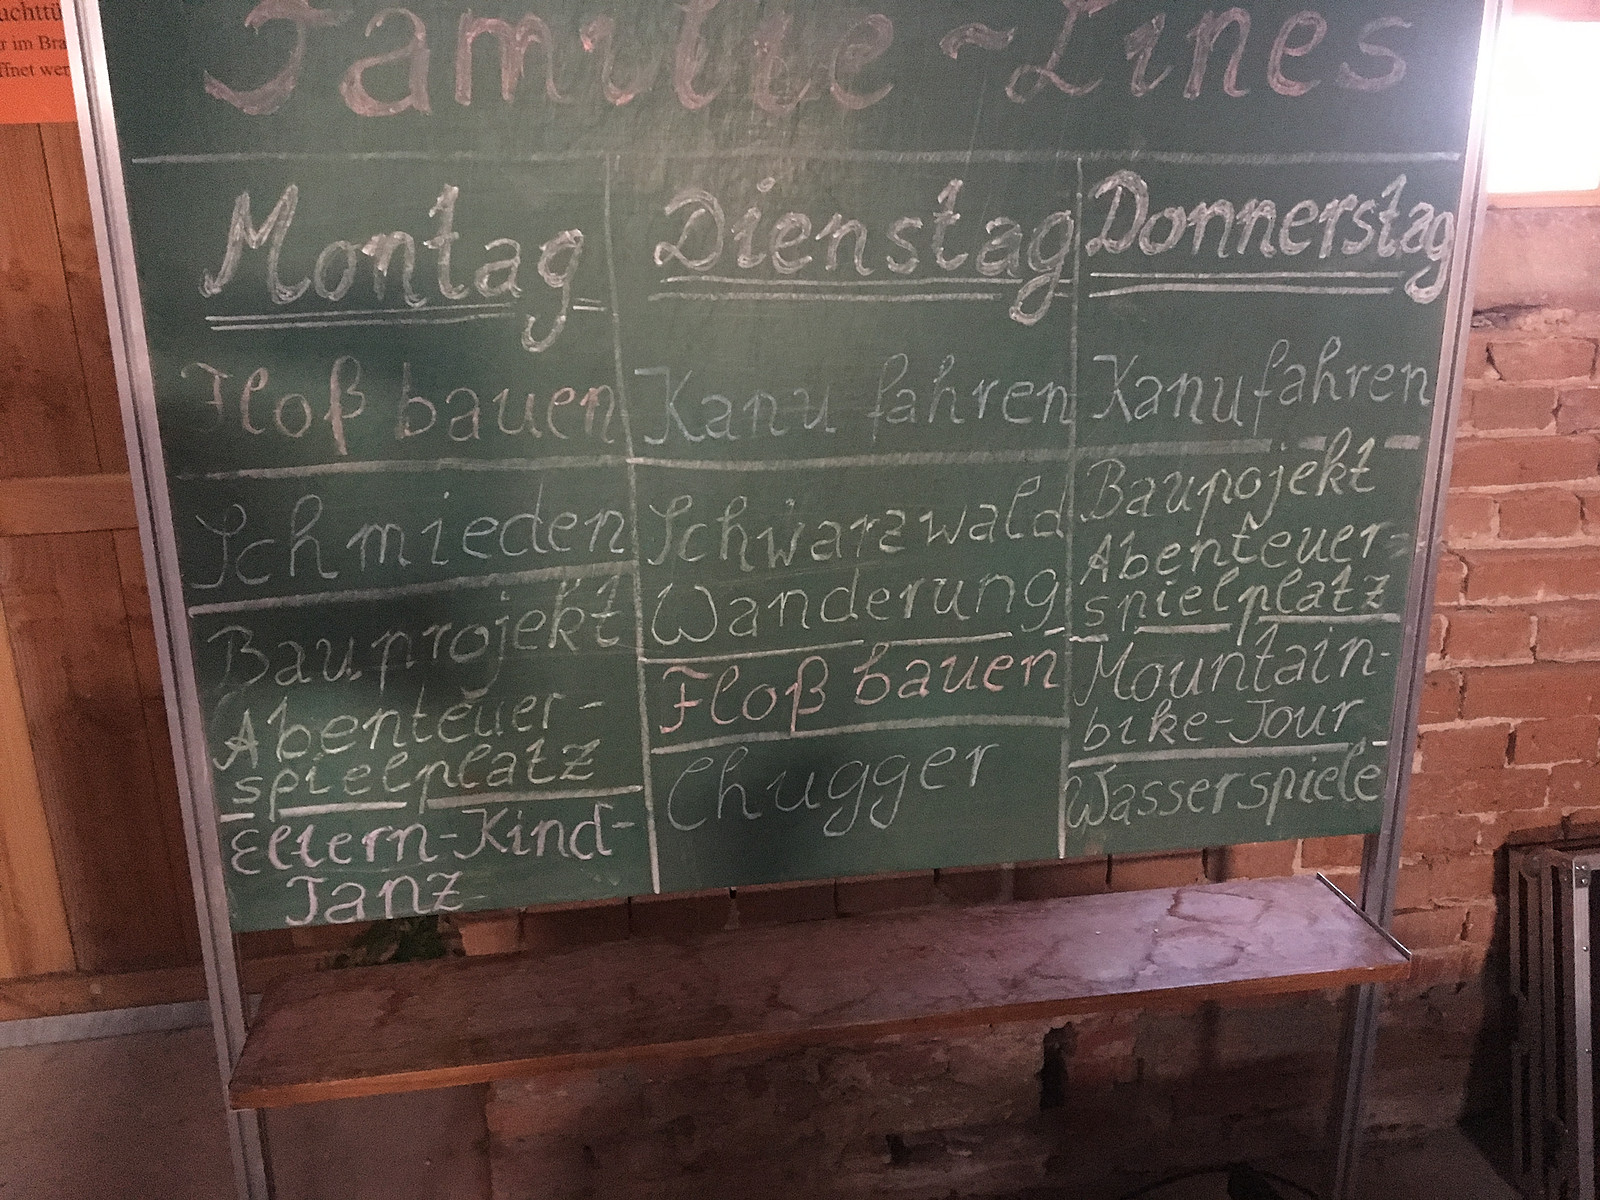 Familie-Lines
Montag
Floß bauen
Schmieden
Bauprojekt
Abenteuer-
spielplatz
Eltern-Kind-
Tanz
Dienstag
Kanu fahren
Schwarzwald
Wanderung
Floß bauen
Chugger
Donnerstag
Kanu fahren
Bauprojekt
Abenteuer-
spielplatz
Mountain-
bike-Tour
Wasserspiele
r im Bra
ffnet wer